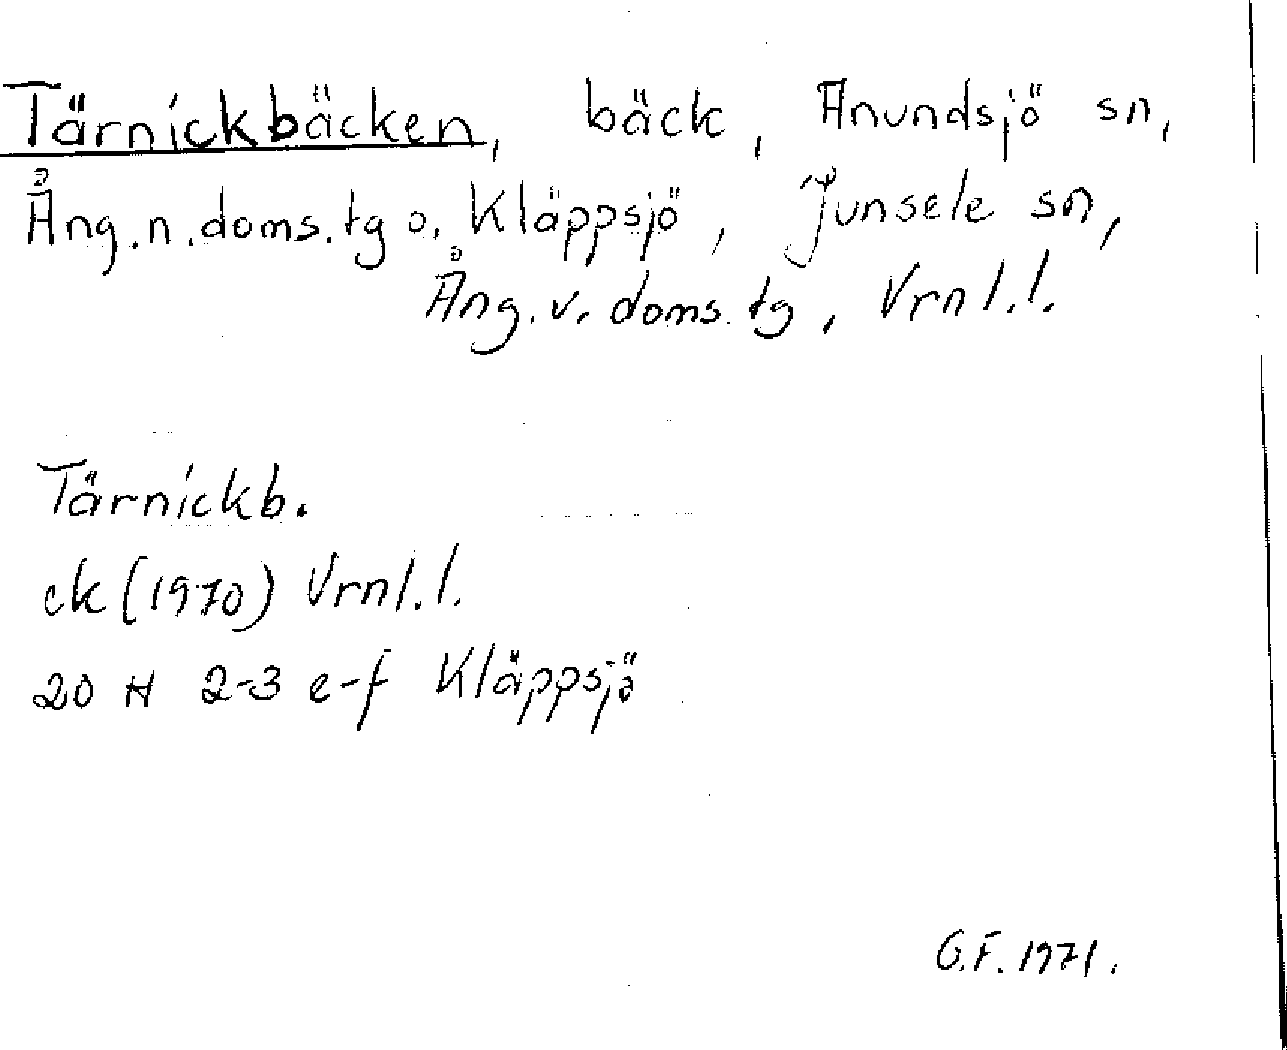 Tärnickbäcken, bäck, Anundsjö sn,
Ång.n.doms.tg o. Kläppsjö, Junsele sn,
Ång.v.doms.tg, Vrnl.l.
Tärnickb.
ek (1970) Vrnl.l.
20 H 2-3 e-f Kläppsjö
G.F. 1971.